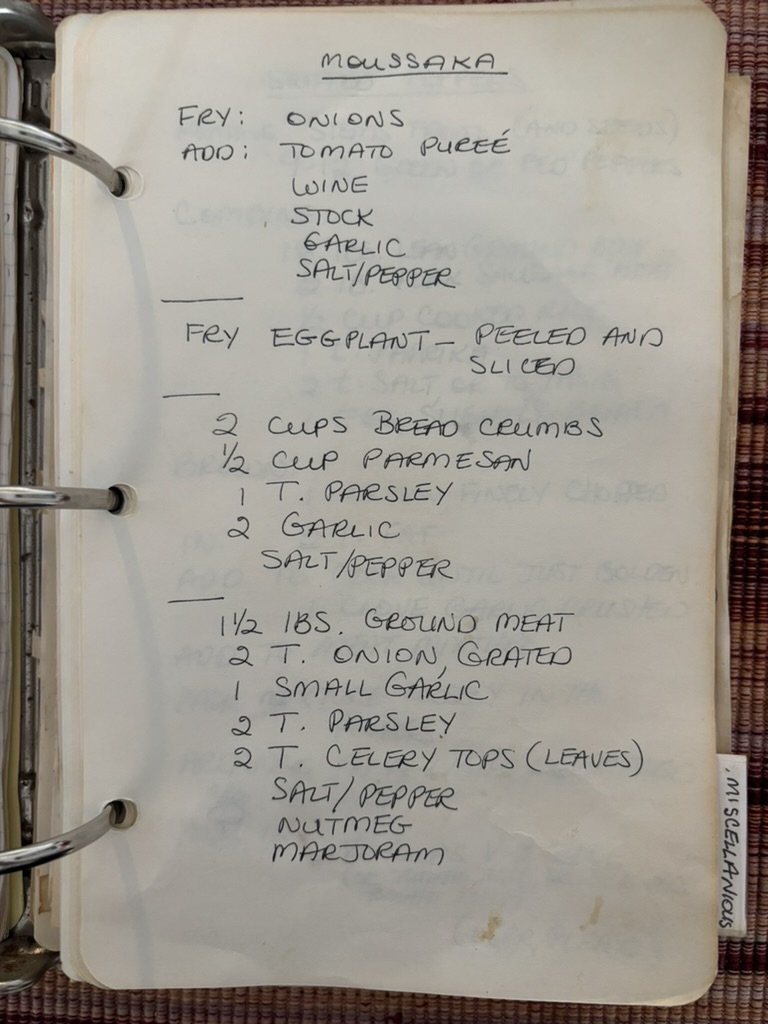 MOUSSAKA
FRY: ONIONS
ADD: TOMATO PUREÉ
WINE
STOCK
GARLIC
SALT/PEPPER
FRY EGGPLANT— PEELED AND
SLICED
2 CUPS BREAD CRUMBS
1/2 CUP PARMESAN
1 T. PARSLEY
2 GARLIC
SALT/PEPPER
1 1/2 lBS. GROUND MEAT
2 T. ONION, GRATED
1 SMALL GARLIC
2 T. PARSLEY
2 T. CELERY TOPS (LEAVES)
SALT/PEPPER
NUTMEG
MARJORAM
MISCELLANIOUS